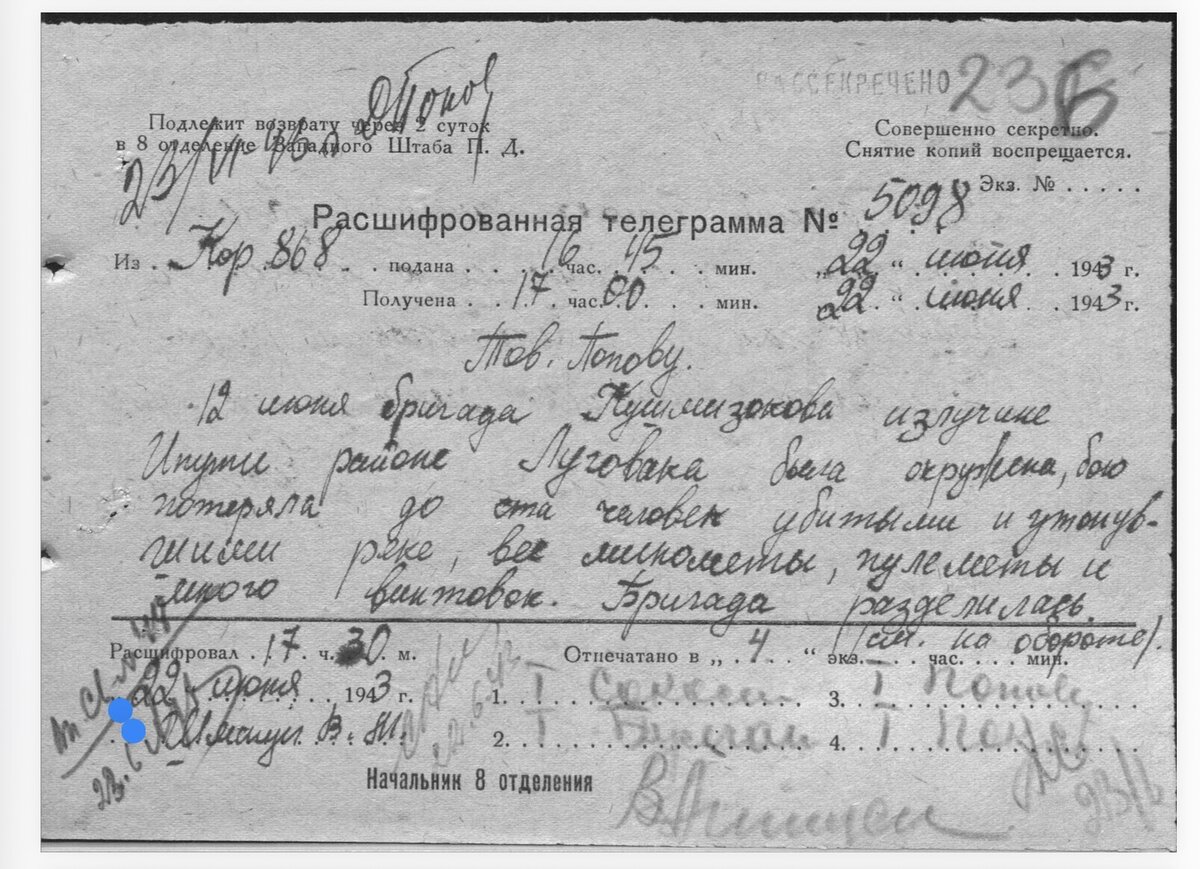 РАССЕКРЕЧЕНО 236
Попов
Подлежит возврату через 2 суток
в 8 отделение Западного Штаба П. Д.
23/VI-43г
Совершенно секретно.
Снятие копий воспрещается.
Экз. № . . . . .
Расшифрованная телеграмма № 5098
Из . Кор. 868 . . подана . . 16 час. 45 . . мин. „22“ июня . . 1943 г.
Получена . . 17 . час. 00 . . мин. 22 . “ июня . . 1943 г.
Тов. Попову.
12 июня бригада излучине
Ипути районе была окружена, бою
потеряла до ста человек убитыми и утонув-
шими реке, все минометы, пулеметы и
много винтовок. Бригада разделилась.
(см. на обороте).
Расшифровал . 17 . ч. 30 . м.
22 июня . . . 1943 г.
Отпечатано в „ . 4 . . “ экз. . . . час. . . . мин.
1. Т 3. Т Попов
2. Т 4. Т
Начальник 8 отделения